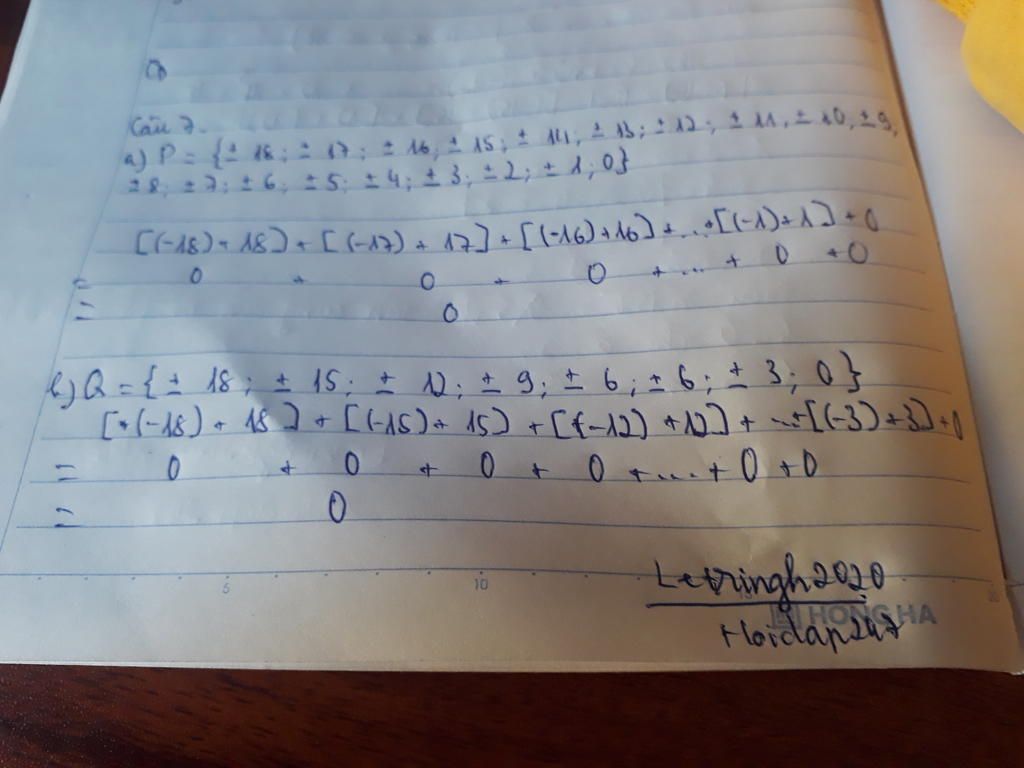 Câu 7.
a) P = {± 18 ; ± 17 ; ± 16 ; ± 15 ; ± 14 ; ± 13 ; ± 12 ; ± 11 , ± 10 , ± 9,
± 8 ; ± 7 ; ± 6 ; ± 5 ; ± 4 ; ± 3 ; ± 2 ; ± 1 ; 0}
[(-18) + 18] + [(-17) + 17] + [(-16) + 16] + ... + [(-1) + 1] + 0
= 0 + 0 + 0 + ... + 0 + 0
= 0
b) Q = {± 18 ; ± 15 ; ± 12 ; ± 9 ; ± 6 ; ± 6 ; ± 3 ; 0}
[+(-18) + 18] + [(-15) + 15) + [(-12) + 12] + ... + [(-3) + 3] + 0
= 0 + 0 + 0 + 0 + ... + 0 + 0
= 0
5 10
Letringh2020
HONG HA
Hoidap247